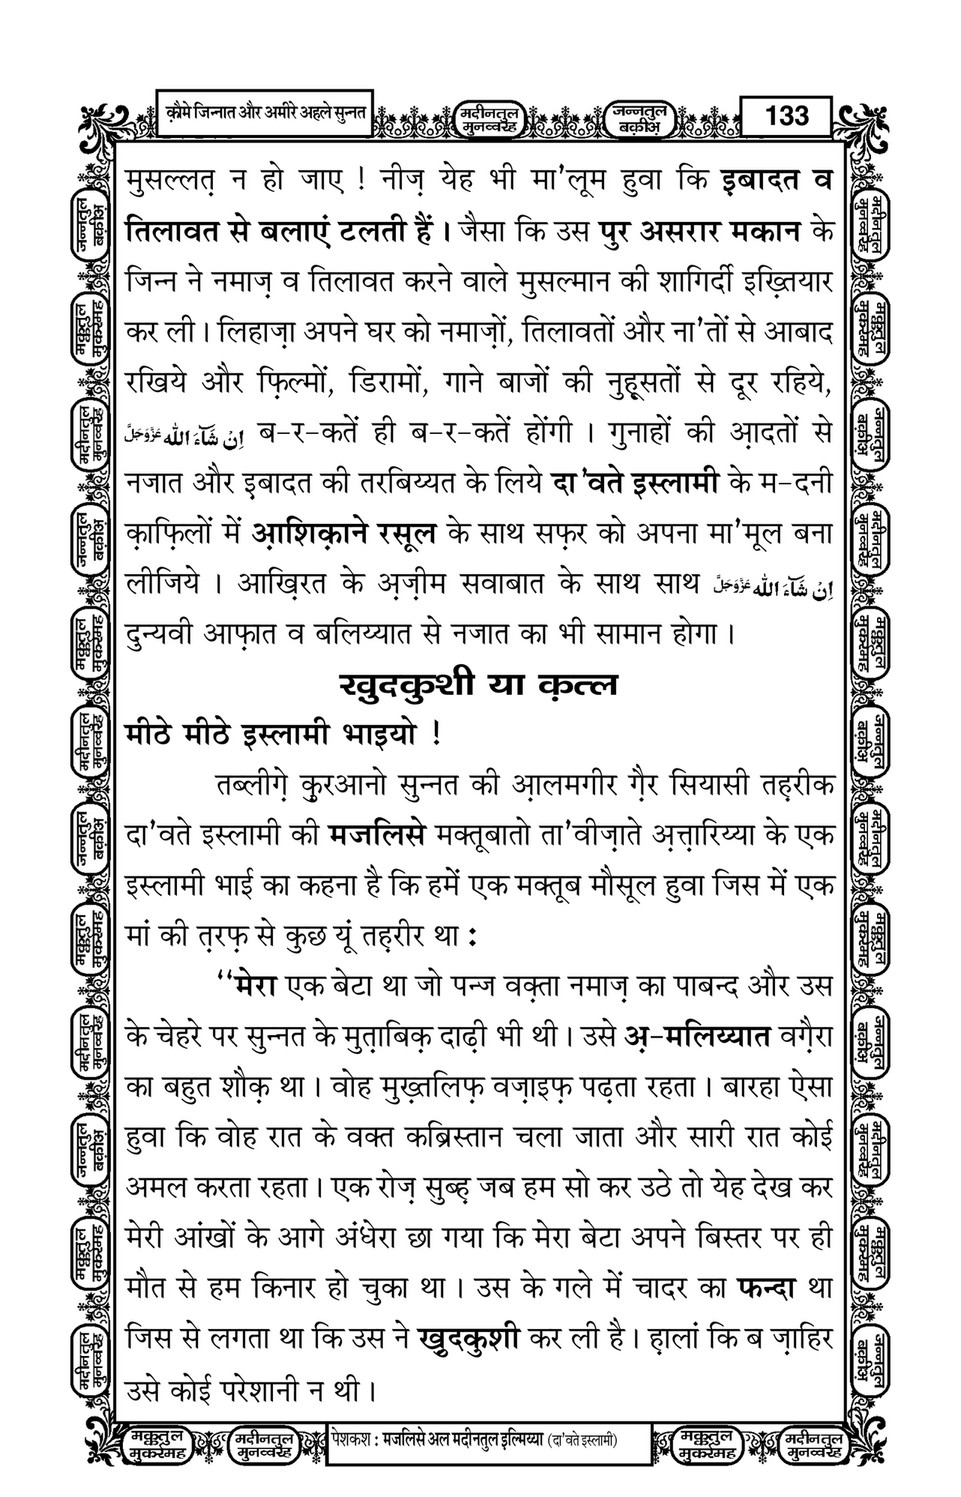 क़ौमे जिन्नात और अमीरे अहले सुन्नत
मदीनतुल मुनव्वरह
जन्नतुल बक़ीअ़
133
मुसल्लत़ न हो जाए ! नीज़ येह भी मा'लूम हुवा कि इबादत व
तिलावत से बलाएं टलती हैं । जैसा कि उस पुर असरार मकान के
जिन्न ने नमाज़ व तिलावत करने वाले मुसल्मान की शागिर्दी इख़्तियार
कर ली । लिहाज़ा अपने घर को नमाज़ों, तिलावतों और ना'तों से आबाद
रखिये और फ़िल्मों, डिरामों, गाने बाजों की नुह़ूसतों से दूर रहिये,
اِنْ شَآءَ اللّٰه عَزَّوَجَلَّ ब-र-कतें ही ब-र-कतें होंगी । गुनाहों की आ़दतों से
नजात और इबादत की तरबिय्यत के लिये दा'वते इस्लामी के म-दनी
क़ाफ़िलों में आ़शिक़ाने रसूल के साथ सफ़र को अपना मा'मूल बना
लीजिये । आख़िरत के अ़ज़ीम सवाबात के साथ साथ اِنْ شَآءَ اللّٰه عَزَّوَجَلَّ
दुन्यवी आफ़ात व बलिय्यात से नजात का भी सामान होगा ।
ख़ुदकुशी या क़त्ल
मीठे मीठे इस्लामी भाइयो !
तब्लीग़े क़ुरआनो सुन्नत की आ़लमगीर ग़ैर सियासी तह़रीक
दा'वते इस्लामी की मजलिसे मक्तूबातो ता'वीज़ाते अ़त्त़ारिय्या के एक
इस्लामी भाई का कहना है कि हमें एक मक्तूब मौसूल हुवा जिस में एक
मां की त़रफ़ से कुछ यूं तह़रीर था :
‘‘मेरा एक बेटा था जो पन्ज वक़्ता नमाज़ का पाबन्द और उस
के चेहरे पर सुन्नत के मुत़ाबिक़ दाढ़ी भी थी । उसे अ़-मलिय्यात वग़ैरा
का बहुत शौक़ था । वोह मुख़्तलिफ़ वज़ाइफ़ पढ़ता रहता । बारहा ऐसा
हुवा कि वोह रात के वक्त कब्रिस्तान चला जाता और सारी रात कोई
अमल करता रहता । एक रोज़ सुब्ह़ जब हम सो कर उठे तो येह देख कर
मेरी आंखों के आगे अंधेरा छा गया कि मेरा बेटा अपने बिस्तर पर ही
मौत से हम किनार हो चुका था । उस के गले में चादर का फन्दा था
जिस से लगता था कि उस ने ख़ुदकुशी कर ली है । ह़ालां कि ब ज़ाहिर
उसे कोई परेशानी न थी ।
मक्कतुल मुकर्रमह
मदीनतुल मुनव्वरह
पेशकश : मजलिसे अल मदीनतुल इल्मिय्या (दा'वते इस्लामी)
मक्कतुल मुकर्रमह
मदीनतुल मुनव्वरह